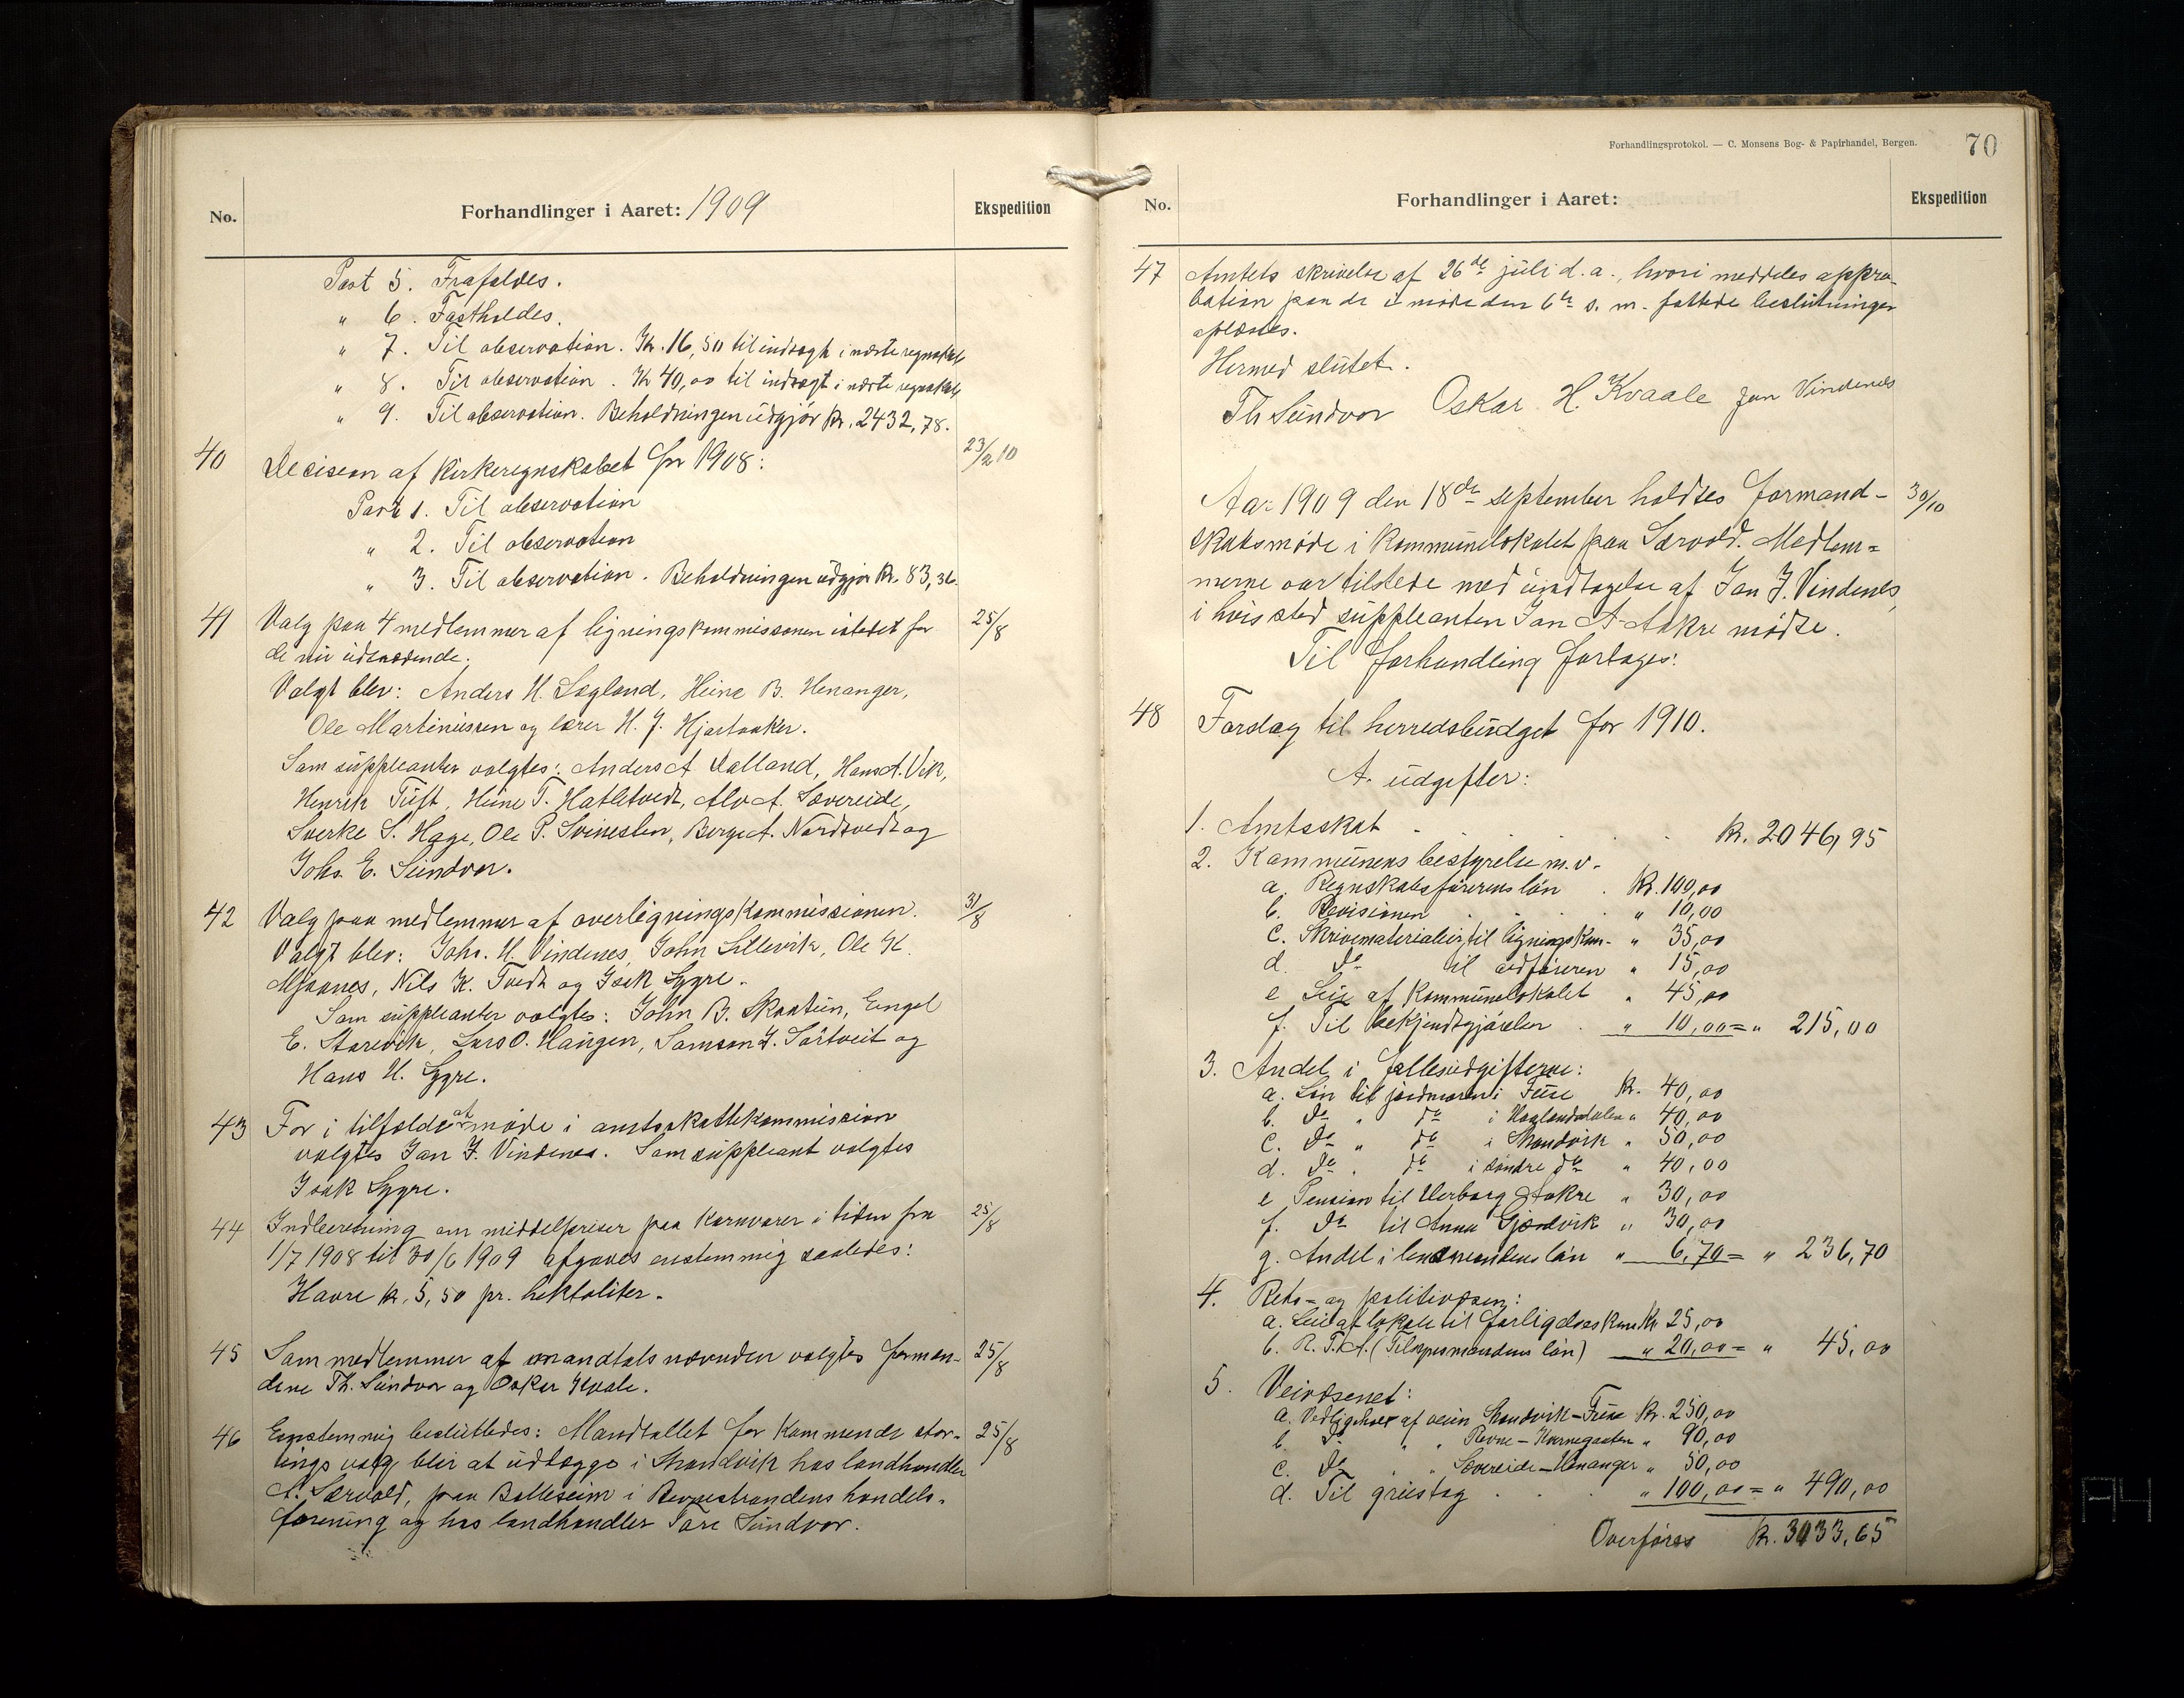 No. Forhandlinger i Aaret: 1909 Ekspedition
Post 5. Frafaldes.
" 6. Fastholdes.
" 7. Til observation. Kr. 16,50 til indtægt i næste regnskab
" 8. Til observation. Kr 40,00 til indtægt i næste regnskab
" 9. Til observation. Beholdningen udgjør kr. 2432,78.
40 Decision af kirkeregnskabet for 1908: 23/2 10
Post 1. Til observation
" 2. Til observation
" 3. Til observation. Beholdningen udgjør kr. 83,36.
41 Valg paa 4 medlemmer af ligningskommissionen istedet for 25/8
de nu udtrædende.
Valgt blev: Anders H. Løgland, Heine B. Henanger,
Ole Martinussen og lærer H. J. Hjortaaker.
Som suppleanter valgtes: Anders A. Dalland, Hans A. Vik,
Henrik Tuft, Heine T. Hatletvedt, Alv A. Sævereide,
Sverke S. Hage, Ole P. Svinesten, Berge A. Nordtvedt og
Johs. E. Sundvor.
42 Valg paa medlemmer af overligningskommissionen. 31/8
Valgt blev: Johs. H. Vindenes, John Lillevik, Ole K.
Mjaanes, Nils K. Tvedt og Isak Lygre.
Som suppleanter valgtes: John B. Skaatun, Engel
E. Storevik, Lars O. Haugen, Samson J. Sørtveit og
Hans H. Lygre.
43 For i tilfælde at møde i amtsskattekommission
valgtes Jan J. Vindenes. Som suppleant valgtes
Isak Lygre.
44 Indberetning om middelpriser paa kornvarer i tiden fra 25/8
1/7 1908 til 30/6 1909 afgaves enstemmig saaledes:
Havre kr. 5,50 pr. hektoliter.
45 Som medlemmer af mandtalsnævnden valgtes forman- 25/8
dene Th. Sundvor og Oskar Kvale.
46 Enstemmig besluttedes: Mandtallet for kommende stor- 25/8
tings valg blir at udlægge i Strandvik hos landhandler
A. Særvold, paa Bolleseim i Revnestrandens handels-
forening og hos landhandler Tore Sundvor.
Forhandlingsprotokol. — C. Monsens Bog- & Papirhandel, Bergen. 70
No. Forhandlinger i Aaret: Ekspedition
47 Amtets skrivelse af 26de juli d. a., hvori meddeles appro-
bation paa de i møde den 6te s. m. fattede beslutninger
oplæses.
Hermed sluttet.
Th Sundvor Oskar H. Kvaale Jan Vindenes
Aar 1909 den 18de september holdtes formand- 30/10
skabsmøde i kommunelokalet paa Særvold. Medlem=
merne var tilstede med undtagelse af Jan J. Vindenes,
i hvis sted suppleanten Jan A. Aakre mødte.
Til forhandling fortages:
48 Forslag til herredsbudget for 1910.
A. udgifter:
1. Amtsskat . . . . kr. 2046,95
2. Kommunens bestyrelse m.v.
a. Regnskabsførerens løn . kr. 100,00
b. Revisionen . . . " 10,00
c. Skrivematerialier til ligningskom- " 35,00
d. do til ordføreren " 15,00
e Leie af kommunelokalet " 45,00
f. Til bekjendtgjørelser . " 10,00 = " 215,00
3. Andel i fællesudgifterne:
a. Løn til jordmoren i Fuse kr. 40,00
b. do " do i Haalandsdalen " 40,00
c. do " do i Strandvik " 50,00
d. do " do i søndre do " 40,00
e Pension til Herborg Aakre " 30,00
f. do til Anna Gjønvik " 30,00
g. Andel i lensmandens løn " 6,70 = " 236,70
4. Rets- og politivæsen:
a. Leie af lokale til forligelseskom kr 25,00
b. R. T. A. (Tilsynsmandens løn) " 20,00 = " 45,00
5. Veivæsenet:
a. Vedligehold af veien Strandvik-Fuse kr. 250,00
b. do " " Revne - Kvernegaaten " 90,00
c. do " " Sævereide - Henanger " 50,00
d. Til grustag . . " 100,00 = " 490,00
Overføres kr. 3033,65